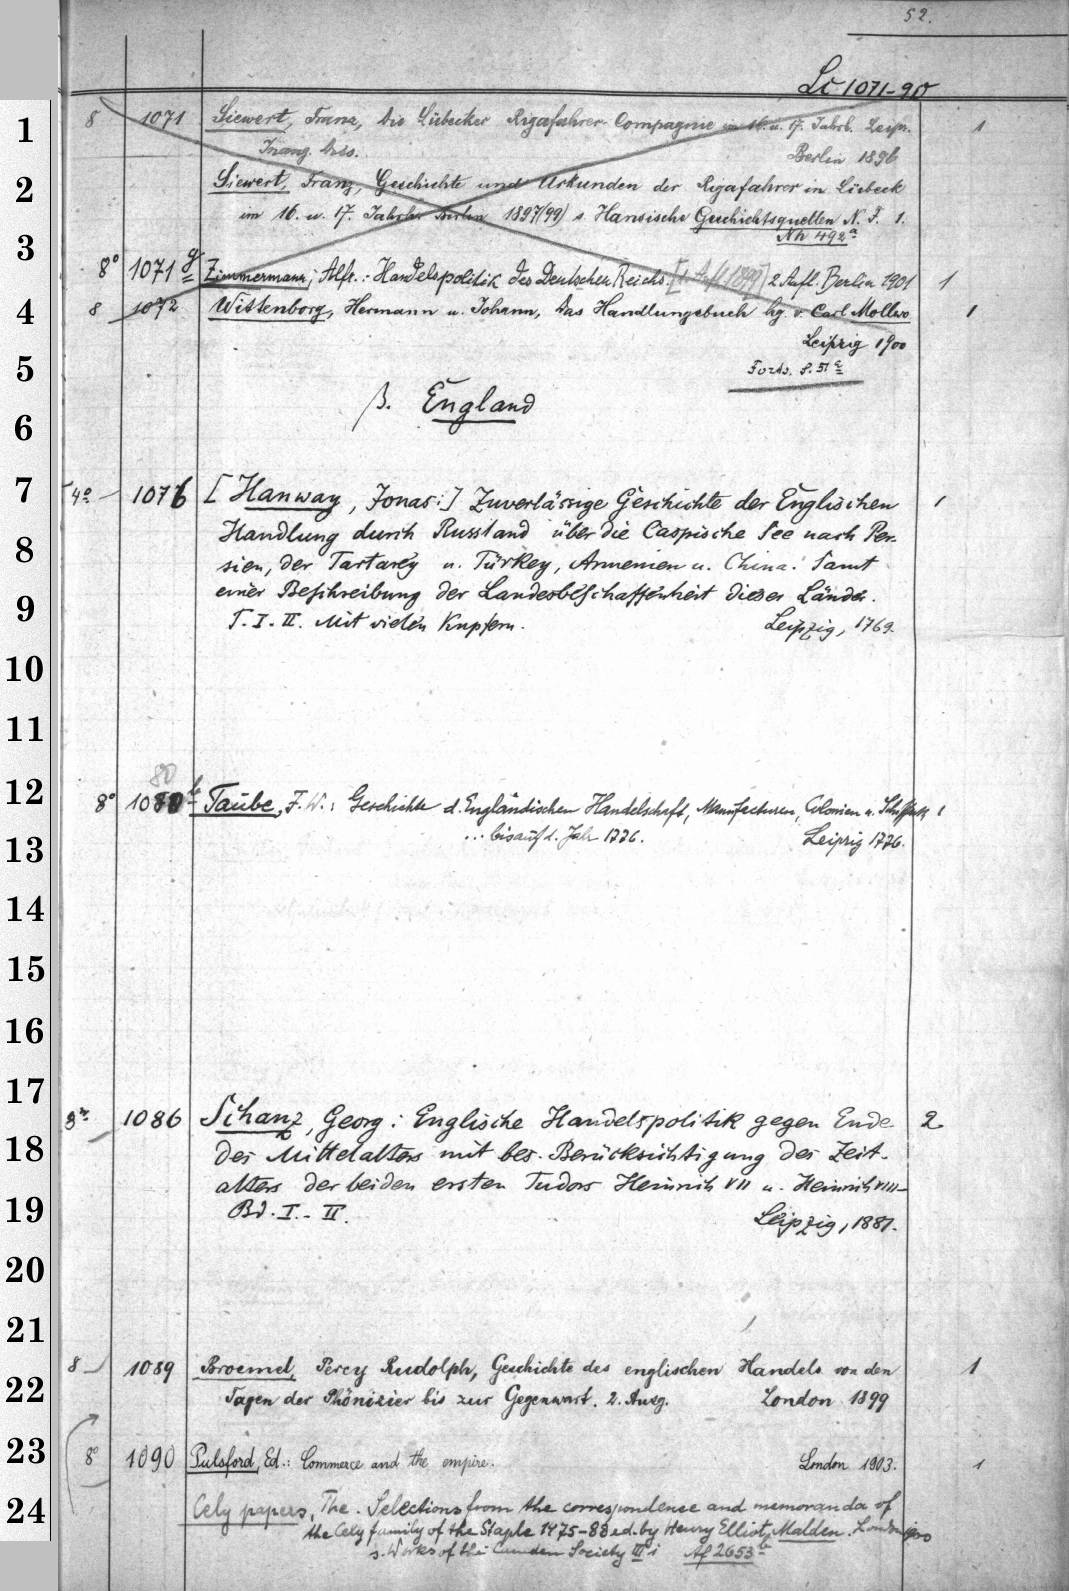 52.
Lc 1071-90
8 1071 Siewert, Franz, die Lübecker Rigafahrer-Compagnie im 16. u. 17. Jahrh. Leipz. 1
Inaug. Diss. Berlin 1896
Siewert, Franz, Geschichte und Urkunden der Rigafahrer in Lübeck
im 16. u. 17. Jahrh. Berlin 1897(99) s. Hansische Geschichtsquellen N. F. 1.
Nh 492ª
8° 1071 g Zimmermann, Alfr.: Handelspolitik des Deutschen Reichs. [1. Aufl 1899] 2 Aufl. Berlin 1901 1
8 1072 Wittenborg, Hermann u. Johann, das Handlungsbuch hg. v. Carl Mollwo 1
Leipzig 1900
Forts. S. 51ª
β. England
4° 1076 [Hanway, Jonas:] Zuverlässige Geschichte der Englischen 1
Handlung durch Russland über die Caspische See nach Per-
sien, der Tartarey u. Türkey, Armenien u. China. Samt
einer Beschreibung der Landesbeschaffenheit dieser Länder.
T. I. II. Mit vielen Kupfern. Leipzig, 1769.
80
8° 1080 b Taube, F. W.: Geschichte d. Engländischen Handelschaft, Manufacturen, Colonien u. Schiffarth 1
... bis auf d. Jahr 1776. Leipzig 1776.
8° 1086 Schanz, Georg: Englische Handelspolitik gegen Ende 2
des Mittelalters mit bes. Berücksichtigung des Zeit-
alters der beiden ersten Tudors Heinrich VII u. Heinrich VIII
Bd. I.- II. Leipzig, 1881.
8 1089 Broemel, Percy Rudolph, Geschichte des englischen Handels von den 1
Tagen der Phönizier bis zur Gegenwart. 2. Ausg. London 1899
8° 1090 Pulsford, Ed.: Commerce and the empire. London 1903. 1
Cely papers, The. Selections from the correspondence and memoranda of
the Cely family of the Staple 1475-88 ed. by Henry Elliot Malden. London 1900
s. Works of the Camden Society III 1 Af 2653 b
1
2
3
4
5
6
7
8
9
10
11
12
13
14
15
16
17
18
19
20
21
22
23
24